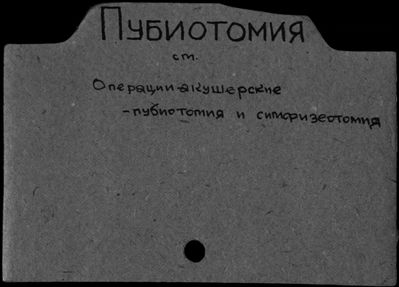 Пубиотомия
ст.
Операции акушерские
-пубиотомия и симфизеотомия